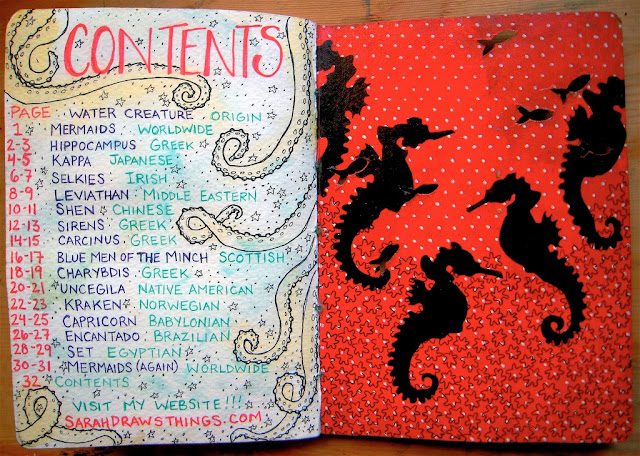 CONTENTS
PAGE WATER CREATURE ORIGIN
1 MERMAIDS WORLDWIDE
2-3 HIPPOCAMPUS GREEK
4-5 KAPPA JAPANESE
6-7 SELKIES IRISH
8-9 LEVIATHAN MIDDLE EASTERN
10-11 SHEN CHINESE
12-13 SIRENS GREEK
14-15 CARCINUS GREEK
16-17 BLUE MEN OF THE MINCH SCOTTISH
18-19 CHARYBDIS GREEK
20-21 UNCEGILA NATIVE AMERICAN
22-23 KRAKEN NORWEGIAN
24-25 CAPRICORN BABYLONIAN
26-27 ENCANTADO BRAZILIAN
28-29 SET EGYPTIAN
30-31 MERMAIDS (AGAIN) WORLDWIDE
32 CONTENTS
VISIT MY WEBSITE!!!
SARAHDRAWSTHINGS.COM